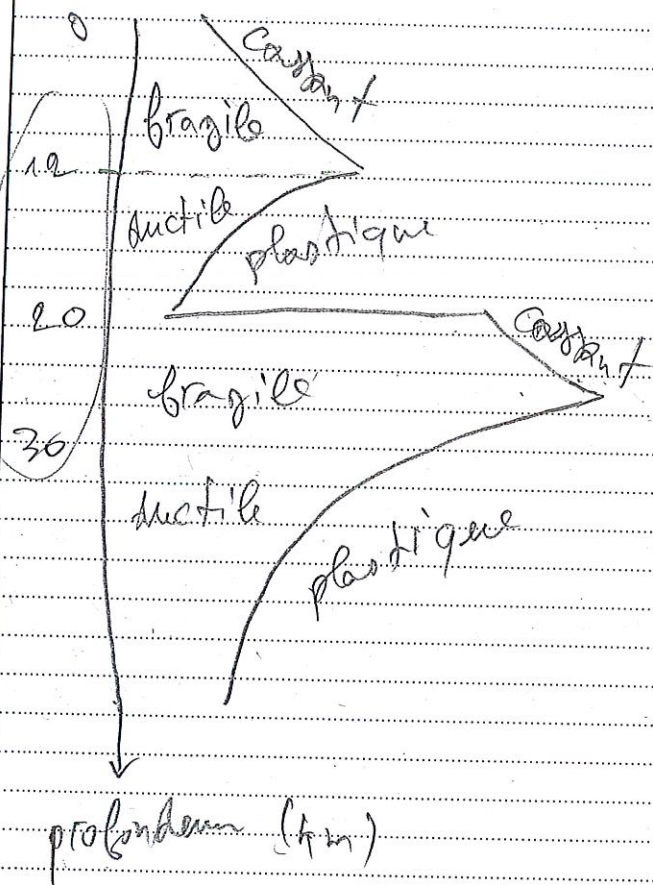 0
cassant
fragile
12
ductile
plastique
20
cassant
fragile
30
ductile
plastique
profondeur (km)